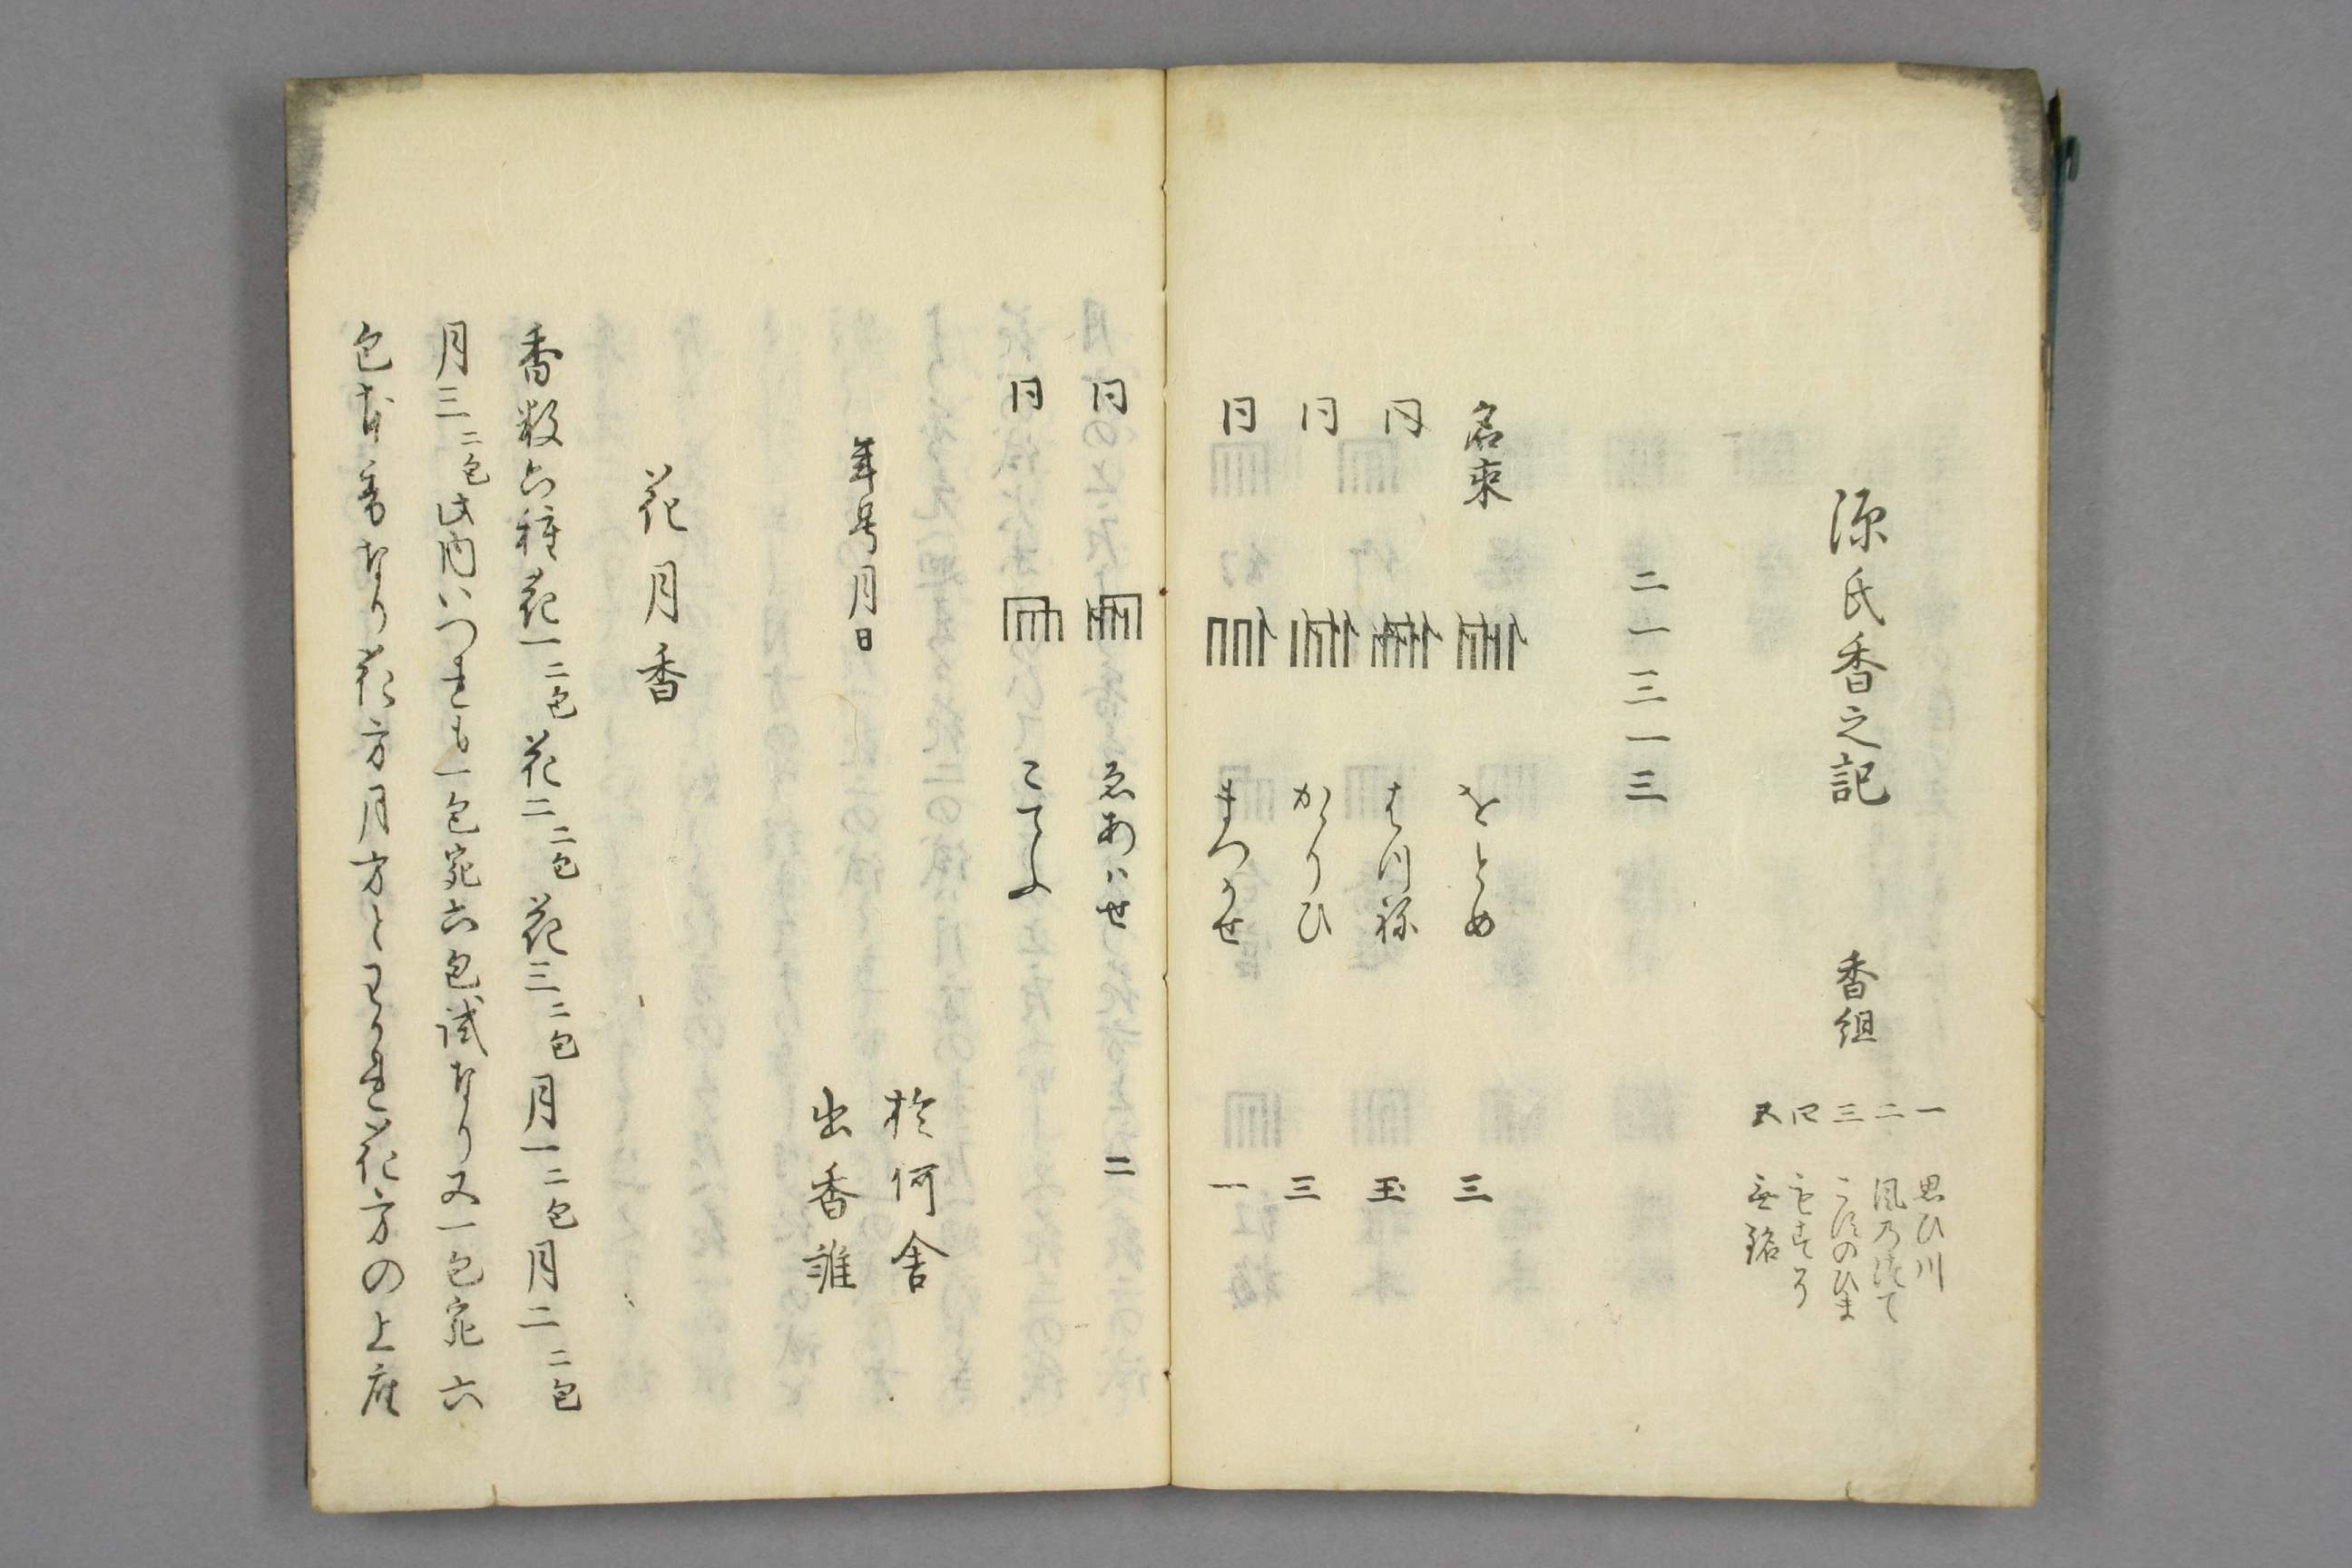 源氏香之記 香組
一 思ひ川
二 風乃つて
三 こすのひま
四
五 無銘
二一三一三
名乗 をとめ 三
同 はつ祢 玉
同 かゝりひ 三
同 まつかせ 一
同 ゑあはせ 二
同 こてふ
於何舎
年号月日
出香誰
花月香
香数六種花一二包花二二包花三二包月一二包月二二包
月三二包此内いつれも一包宛六包試なり又一包宛六
包本香なり花方月方とわかれ花方の上座